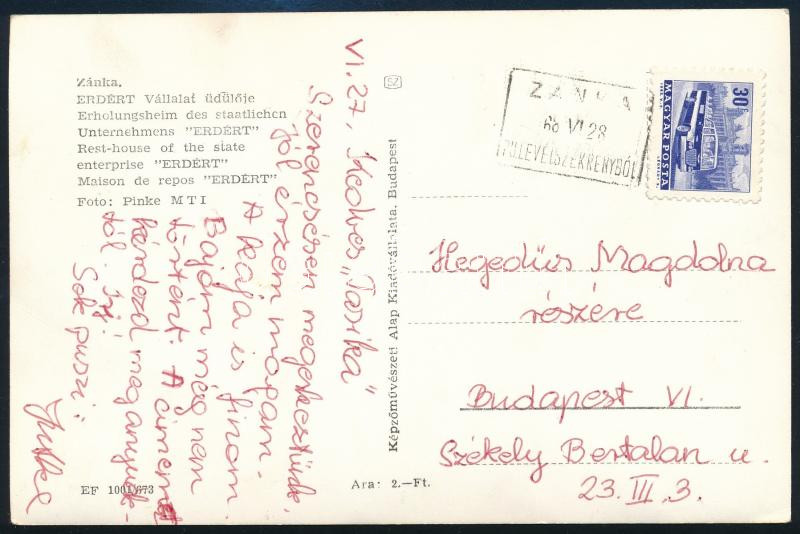 Zánka.
ERDÉRT Vállalat üdülője
Erholungsheim des staatlichen
Unternehmens "ERDÉRT"
Rest-house of the state
enterprise "ERDÉRT"
Maison de repos "ERDÉRT"
Foto: Pinke MTI
VI. 27, Kedves „Tasika"
Szerencsésen megérkeztünk.
Jól érzem magam.
A kaja is finom.
Bajom még nem
történt. A címemet
kérdezd meg anyuék-
tól. Írj!
Sok puszi:
Jutka
EF 1001/673
Ara: 2.—Ft.
Képzőművészeti Alap Kiadóvállalata, Budapest
SZ
ZÁNKA
68 VI 28
LEVÉLSZEKRÉNYBŐL
30f
MAGYAR POSTA
Hegedűs Magdolna
részére
Budapest VI.
Székely Bertalan u.
23. III. 3.